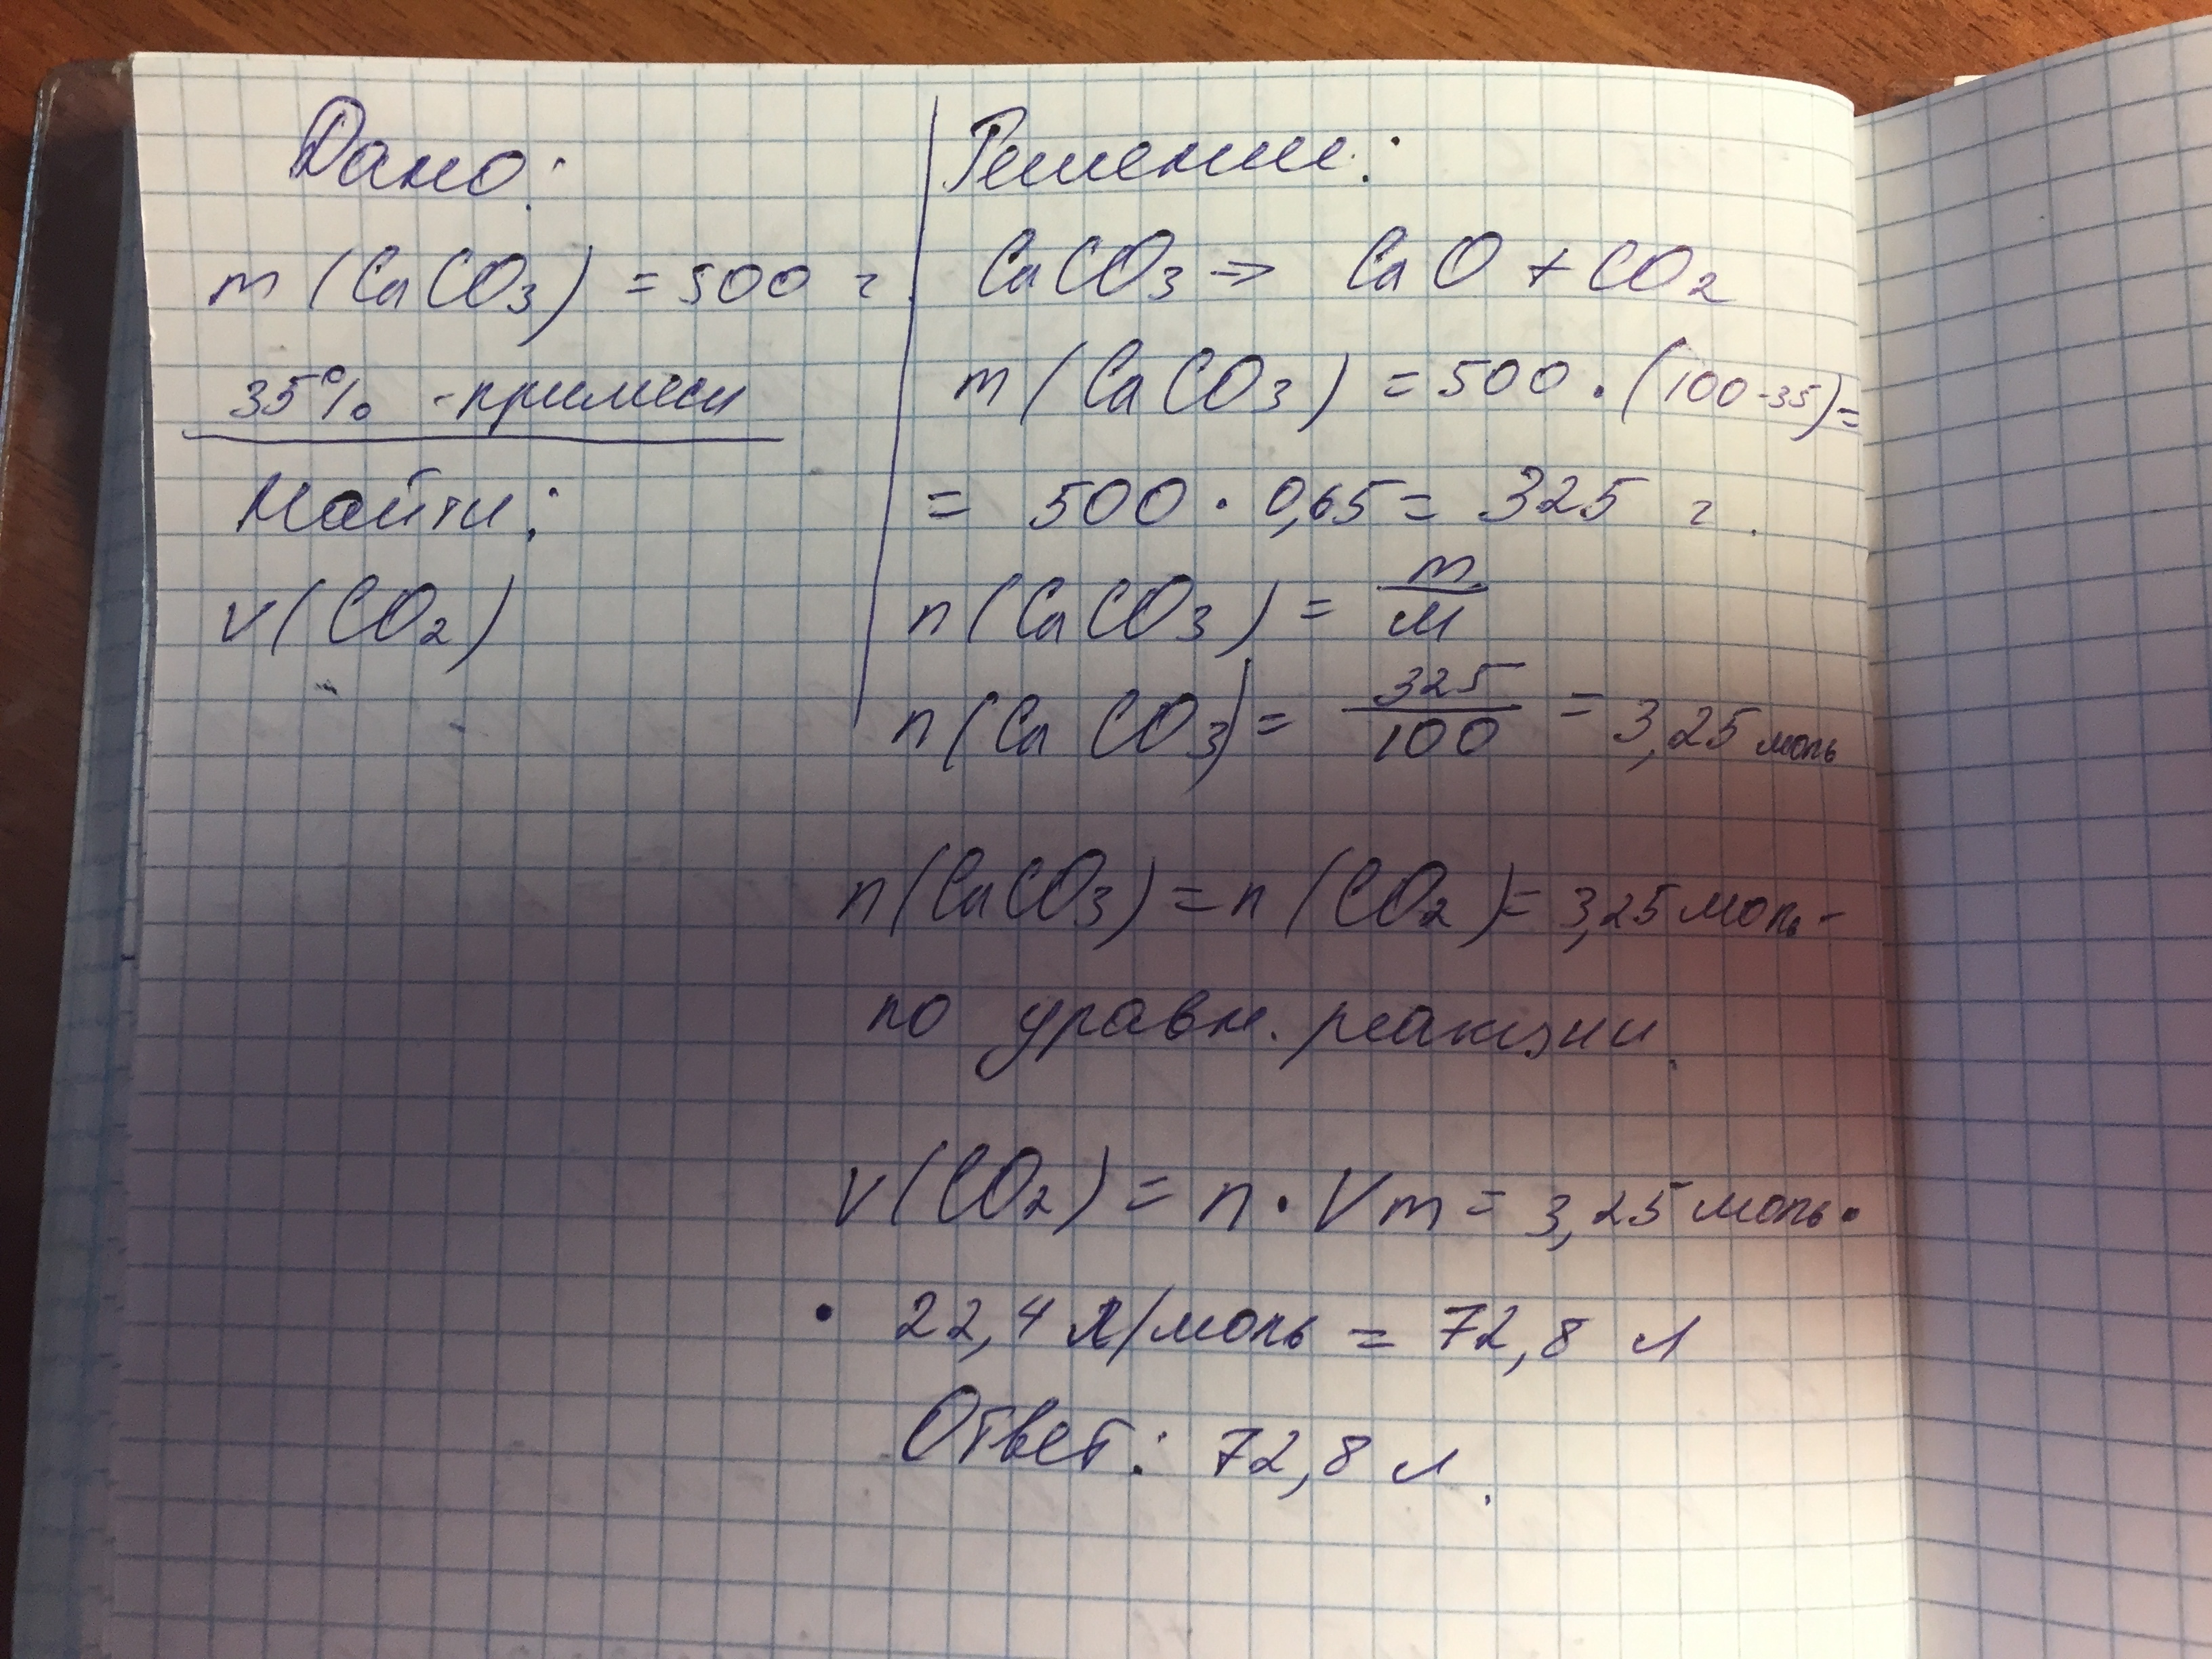 Дано:
m (CaCO3) = 500 г.
35% - примеси
Найти:
v(CO2)
Решение:
CaCO3 → CaO + CO2
m (CaCO3) = 500 · (100-35) =
= 500 · 0,65 = 325 г.
n (CaCO3) = m/M
n (CaCO3) = 325/100 = 3,25 моль
n (CaCO3) = n (CO2) = 3,25 моль -
по уравн. реакции.
v(CO2) = n · Vm = 3,25 моль ·
· 22,4 л/моль = 72,8 л
Ответ: 72,8 л.